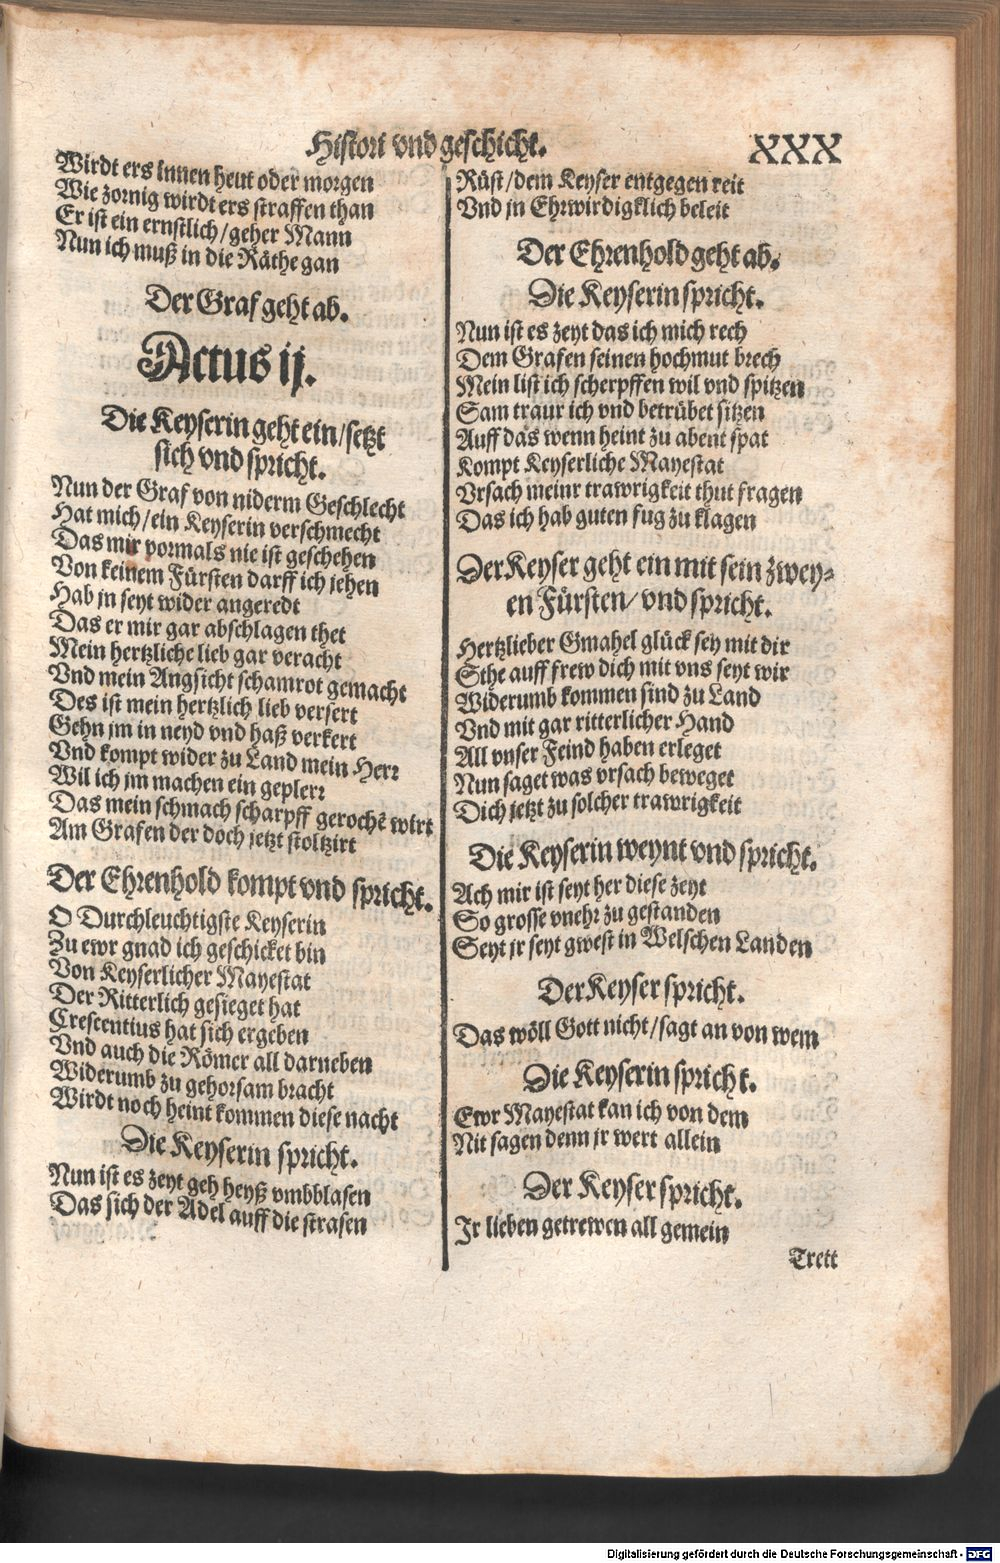 Histori vnd geschicht.
XXX
Wirdt ers innen heut oder morgen
Wie zornig wirdt ers straffen than
Er ist ein ernstlich/geher Mann
Nun ich muß in die Räthe gan
Der Graf geht ab.
Actus ij.
Die Keyserin geht ein/setzt
sich vnd spricht.
Nun der Graf von niderm Geschlecht
Hat mich/ein Keyserin verschmecht
Das mir vormals nie ist geschehen
Von keinem Fürsten darff ich jehen
Hab jn seyt wider angeredt
Das er mir gar abschlagen thet
Mein hertzliche lieb gar veracht
Vnd mein Angsicht schamrot gemacht
Des ist mein hertzlich lieb versert
Gehn jm in neyd vnd haß verkert
Vnd kompt wider zu Land mein Herr
Wil ich jm machen ein geplerr
Das mein schmach scharpff gerochē wirt
Am Grafen der doch jetzt stoltzirt
Der Ehrenhold kompt vnd spricht.
O Durchleuchtigste Keyserin
Zu ewr gnad ich geschicket bin
Von Keyserlicher Mayestat
Der Ritterlich gesieget hat
Crescentius hat sich ergeben
Vnd auch die Römer all darneben
Widerumb zu gehorsam bracht
Wirdt noch heint kommen diese nacht
Die Keyserin spricht.
Nun ist es zeyt geh heyß vmbblasen
Das sich der Adel auff die strasen
Rüst/dem Keyser entgegen reit
Vnd jn Ehrwirdigklich beleit
Der Ehrenhold geht ab.
Die Keyserin spricht.
Nun ist es zeyt das ich mich rech
Dem Grafen seinen hochmut brech
Mein list ich scherpffen wil vnd spitzen
Sam traur ich vnd betrübet sitzen
Auff das wenn heint zu abent spat
Kompt Keyserliche Mayestat
Vrsach meinr trawrigkeit thut fragen
Das ich hab guten fug zu klagen
Der Keyser geht ein mit sein zwey-
en Fürsten/vnd spricht.
Hertzlieber Gmahel glück sey mit dir
Sthe auff frew dich mit vns seyt wir
Widerumb kommen sind zu Land
Vnd mit gar ritterlicher Hand
All vnser Feind haben erleget
Nun saget was vrsach beweget
Dich jetzt zu solcher trawrigkeit
Die Keyserin weynt vnd spricht.
Ach mir ist seyt her diese zeyt
So grosse vnehr zu gestanden
Seyt jr seyt gwest in Welschen Landen
Der Keyser spricht.
Das wöll Gott nicht/sagt an von wem
Die Keyserin spricht.
Ewr Mayestat kan ich von dem
Nit sagen denn jr wert allein
Der Keyser spricht.
Jr lieben getrewen all gemein
Trett
Digitalisierung gefördert durch die Deutsche Forschungsgemeinschaft - DFG